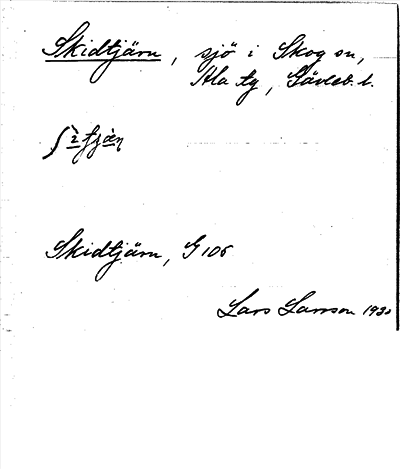 Skidtjärn, sjö i Skog sn,
Ala tg, Gävleb. l.
Skidtjärn, G 106
Lars Larsson 1930